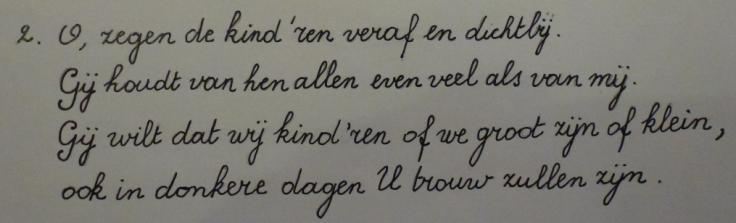 2. O, zegen de kind'ren veraf en dichtbij.
Gij houdt van hen allen even veel als van mij.
Gij wilt dat wij kind'ren of we groot zijn of klein,
ook in donkere dagen U trouw zullen zijn.